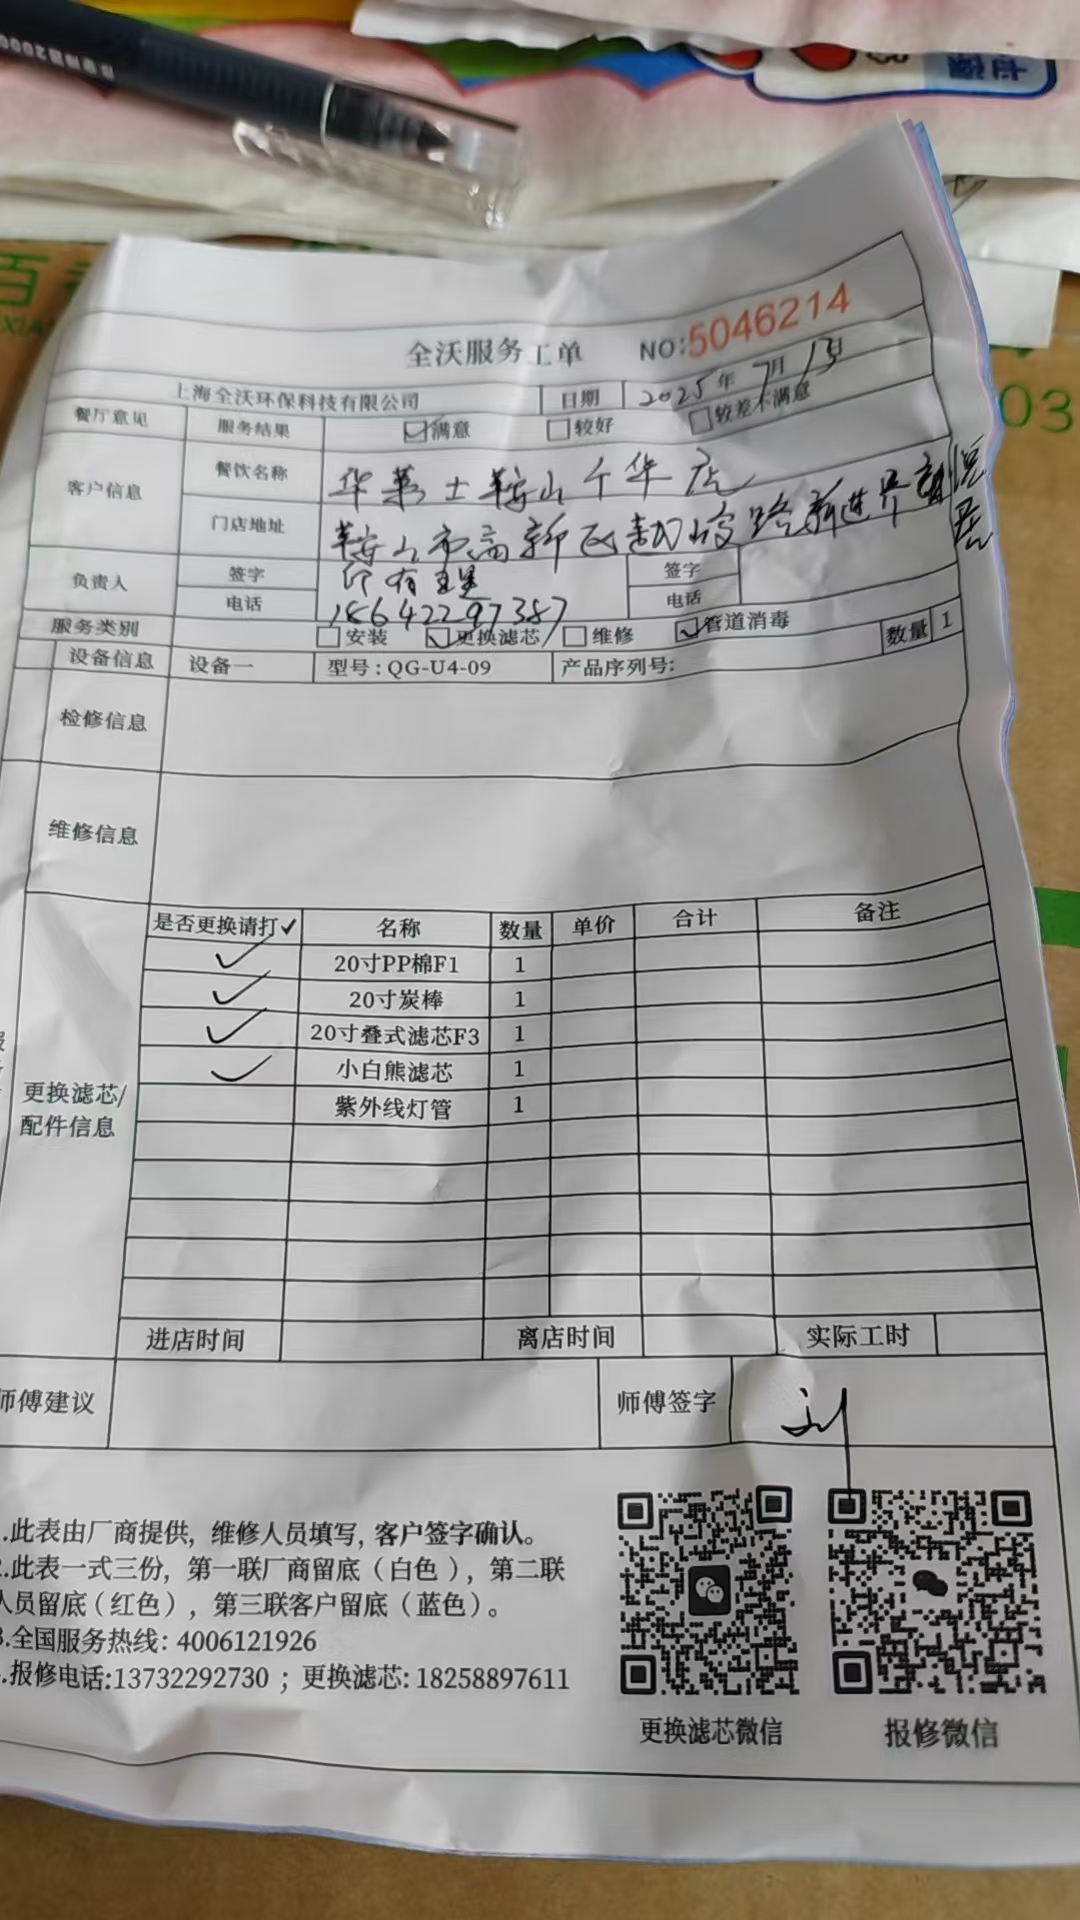 03
全沃服务工单 NO:5046214
上海全沃环保科技有限公司 日期 2025年7月13日
餐厅意见 服务结果 ☑满意 □较好 □较差不满意
客户信息 餐饮名称 华莱士鞍山千华店
门店地址 鞍山市高新区越岭路新世界
负责人 签字 印有 签字
电话 18642297387 电话
服务类别 □安装 ☑更换滤芯 □维修 ☑管道消毒 数量 1
设备信息 设备一 型号:QG-U4-09 产品序列号:
检修信息
维修信息
更换滤芯/配件信息
是否更换请打✓ 名称 数量 单价 合计 备注
✓ 20寸PP棉F1 1
✓ 20寸炭棒 1
✓ 20寸叠式滤芯F3 1
✓ 小白熊滤芯 1
紫外线灯管 1
进店时间 离店时间 实际工时
师傅建议 师傅签字 刘
.此表由厂商提供, 维修人员填写, 客户签字确认。
.此表一式三份, 第一联厂商留底(白色), 第二联
人员留底(红色), 第三联客户留底(蓝色)。
.全国服务热线: 4006121926
.报修电话:13732292730 ; 更换滤芯: 18258897611
更换滤芯微信 报修微信